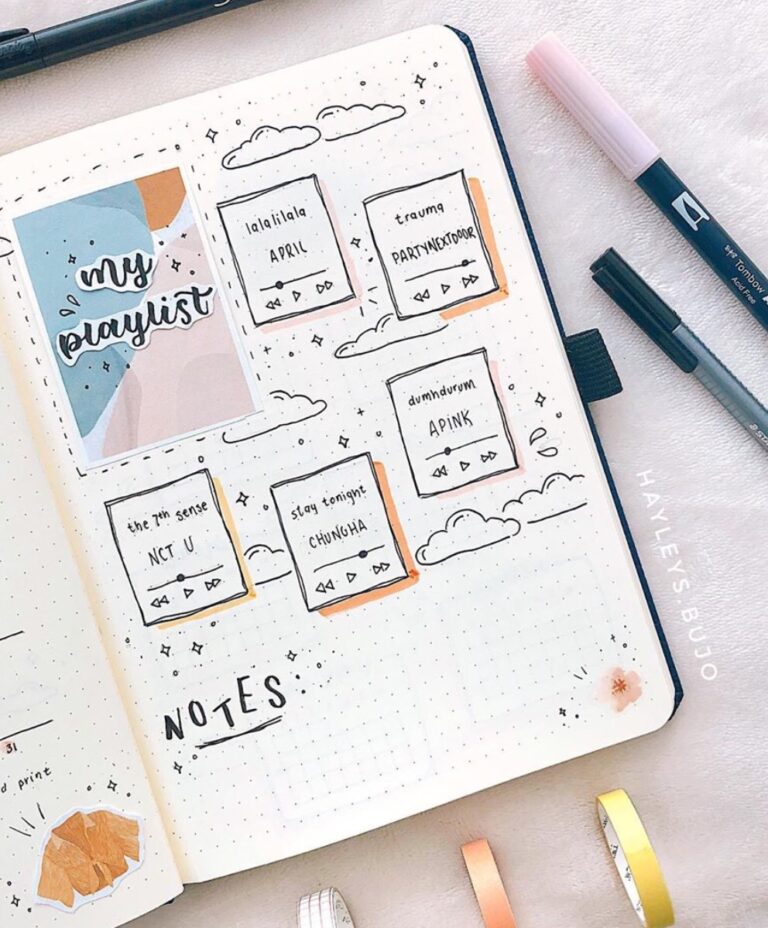 my
playlist
lalalilala
APRIL
trauma
PARTYNEXTDOOR
dumhdurum
APINK
the 7th sense
NCT U
stay tonight
CHUNGHA
NOTES:
31
d print
Tombow
Acid Free
HAYLEYS.BUJO